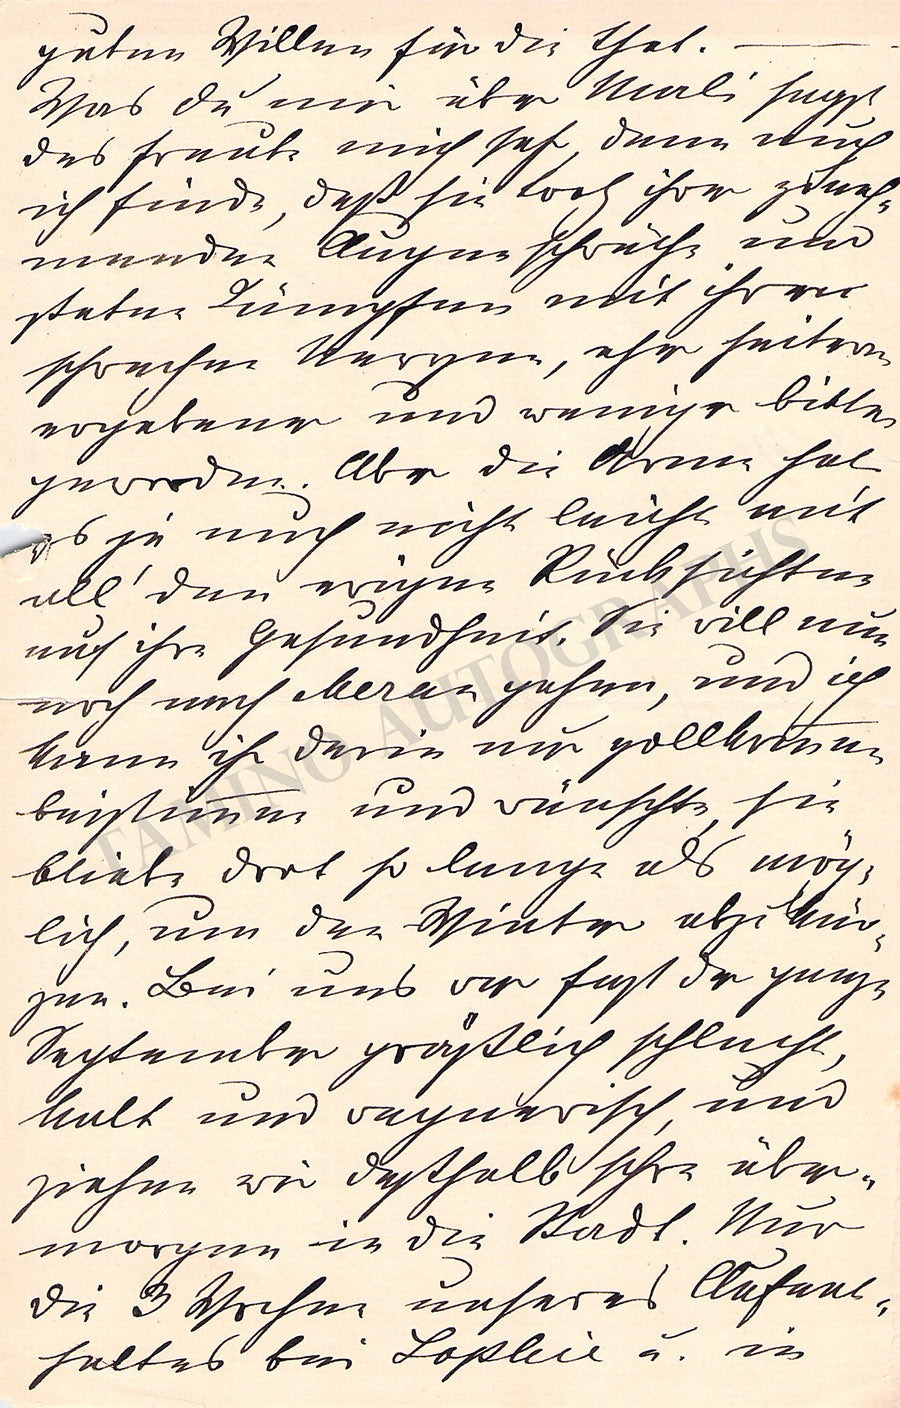 guten Willen für die That. —
Was du mir über Mali sagst
das freute mich sehr, denn auch
ich finde, daß sie trotz ihrer zuneh-
menden Augenschwäche und
steten Kämpfen mit ihren
schwachen Nerven, eher heiterer
ergebener und weniger bitter
geworden. Aber die Arme hat
es ja auch nicht leicht mit
all' den ewigen Rücksichten
auf ihre Gesundheit. Sie will nun
noch nach Meran gehen, und ich
kann ihr darin nur vollkommen
beistimmen und wünschte, sie
bliebe dort so lange als mög-
lich, um den Winter abzukür-
zen. Bei uns war fast der ganze
September gräßlich schlecht,
kalt und regnerisch, und
ziehen wir deßhalb schon über-
morgen in die Stadt. Nur
die 3 Wochen unseres Aufent-
haltes bei Sophie u. in
TAMINO AUTOGRAPHS